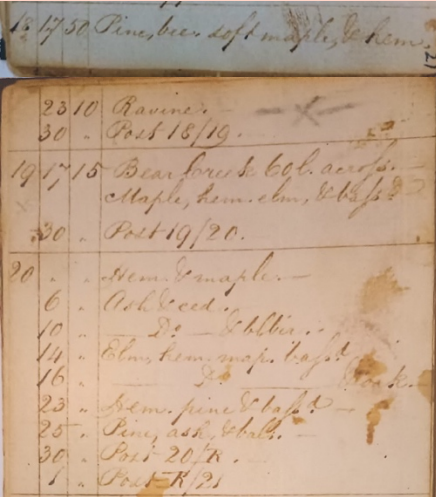 18 17 50 Pine, bee. soft maple, & hem.
23 10 Ravine. —
30 " Post 18/19.
19 17 15 Bear Creek 60 l. across.
Maple, hem. elm, & bassd
30 " Post 19/20.
20 " " Hem. & maple. —
6 " Ash & ced.
10 " — Do — & bl. bir.
14 " Elm, hem. map. bassd
16 " — Do —
23 " Hem. pine & bassd —
25 " Pine, ash, & bals. —
30 " Post 20/R. —
1 " Post R/21